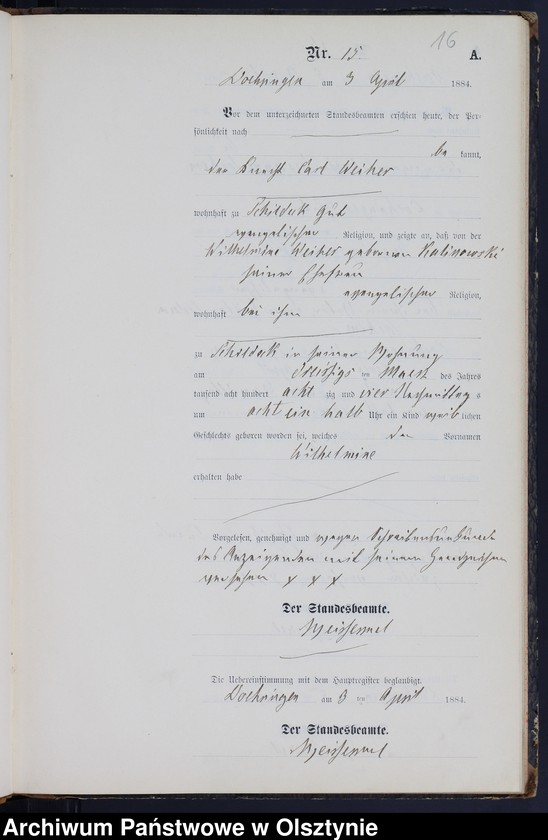 16
Nr. 15
A.
Doehringen am 3 April 1884.
Vor dem unterzeichneten Standesbeamten erschien heute, der Per-
sönlichkeit nach
be kannt,
der Knecht Carl Weiher
wohnhaft zu Schildeck Gut
evangelischer Religion, und zeigte an, daß von der
Wilhelmine Weiher geborenen Kalinowski
seiner Ehefrau
evangelischer Religion,
wohnhaft bei ihm
zu Schildeck in seiner Wohnung
am dreissigs ten Maerz des Jahres
tausend acht hundert acht zig und vier Nachmittag s
um acht ein halb Uhr ein Kind weib lichen
Geschlechts geboren worden sei, welches den Vornamen
Wilhelmine
erhalten habe
Vorgelesen, genehmigt und wegen Schreibensunkunde
des Anzeigenden mit seinem Handzeichen
versehen x x x
Der Standesbeamte.
Weissermel
Die Uebereinstimmung mit dem Hauptregister beglaubigt.
Doehringen am 3 ten April 1884.
Der Standesbeamte.
Weissermel
Archiwum Państwowe w Olsztynie